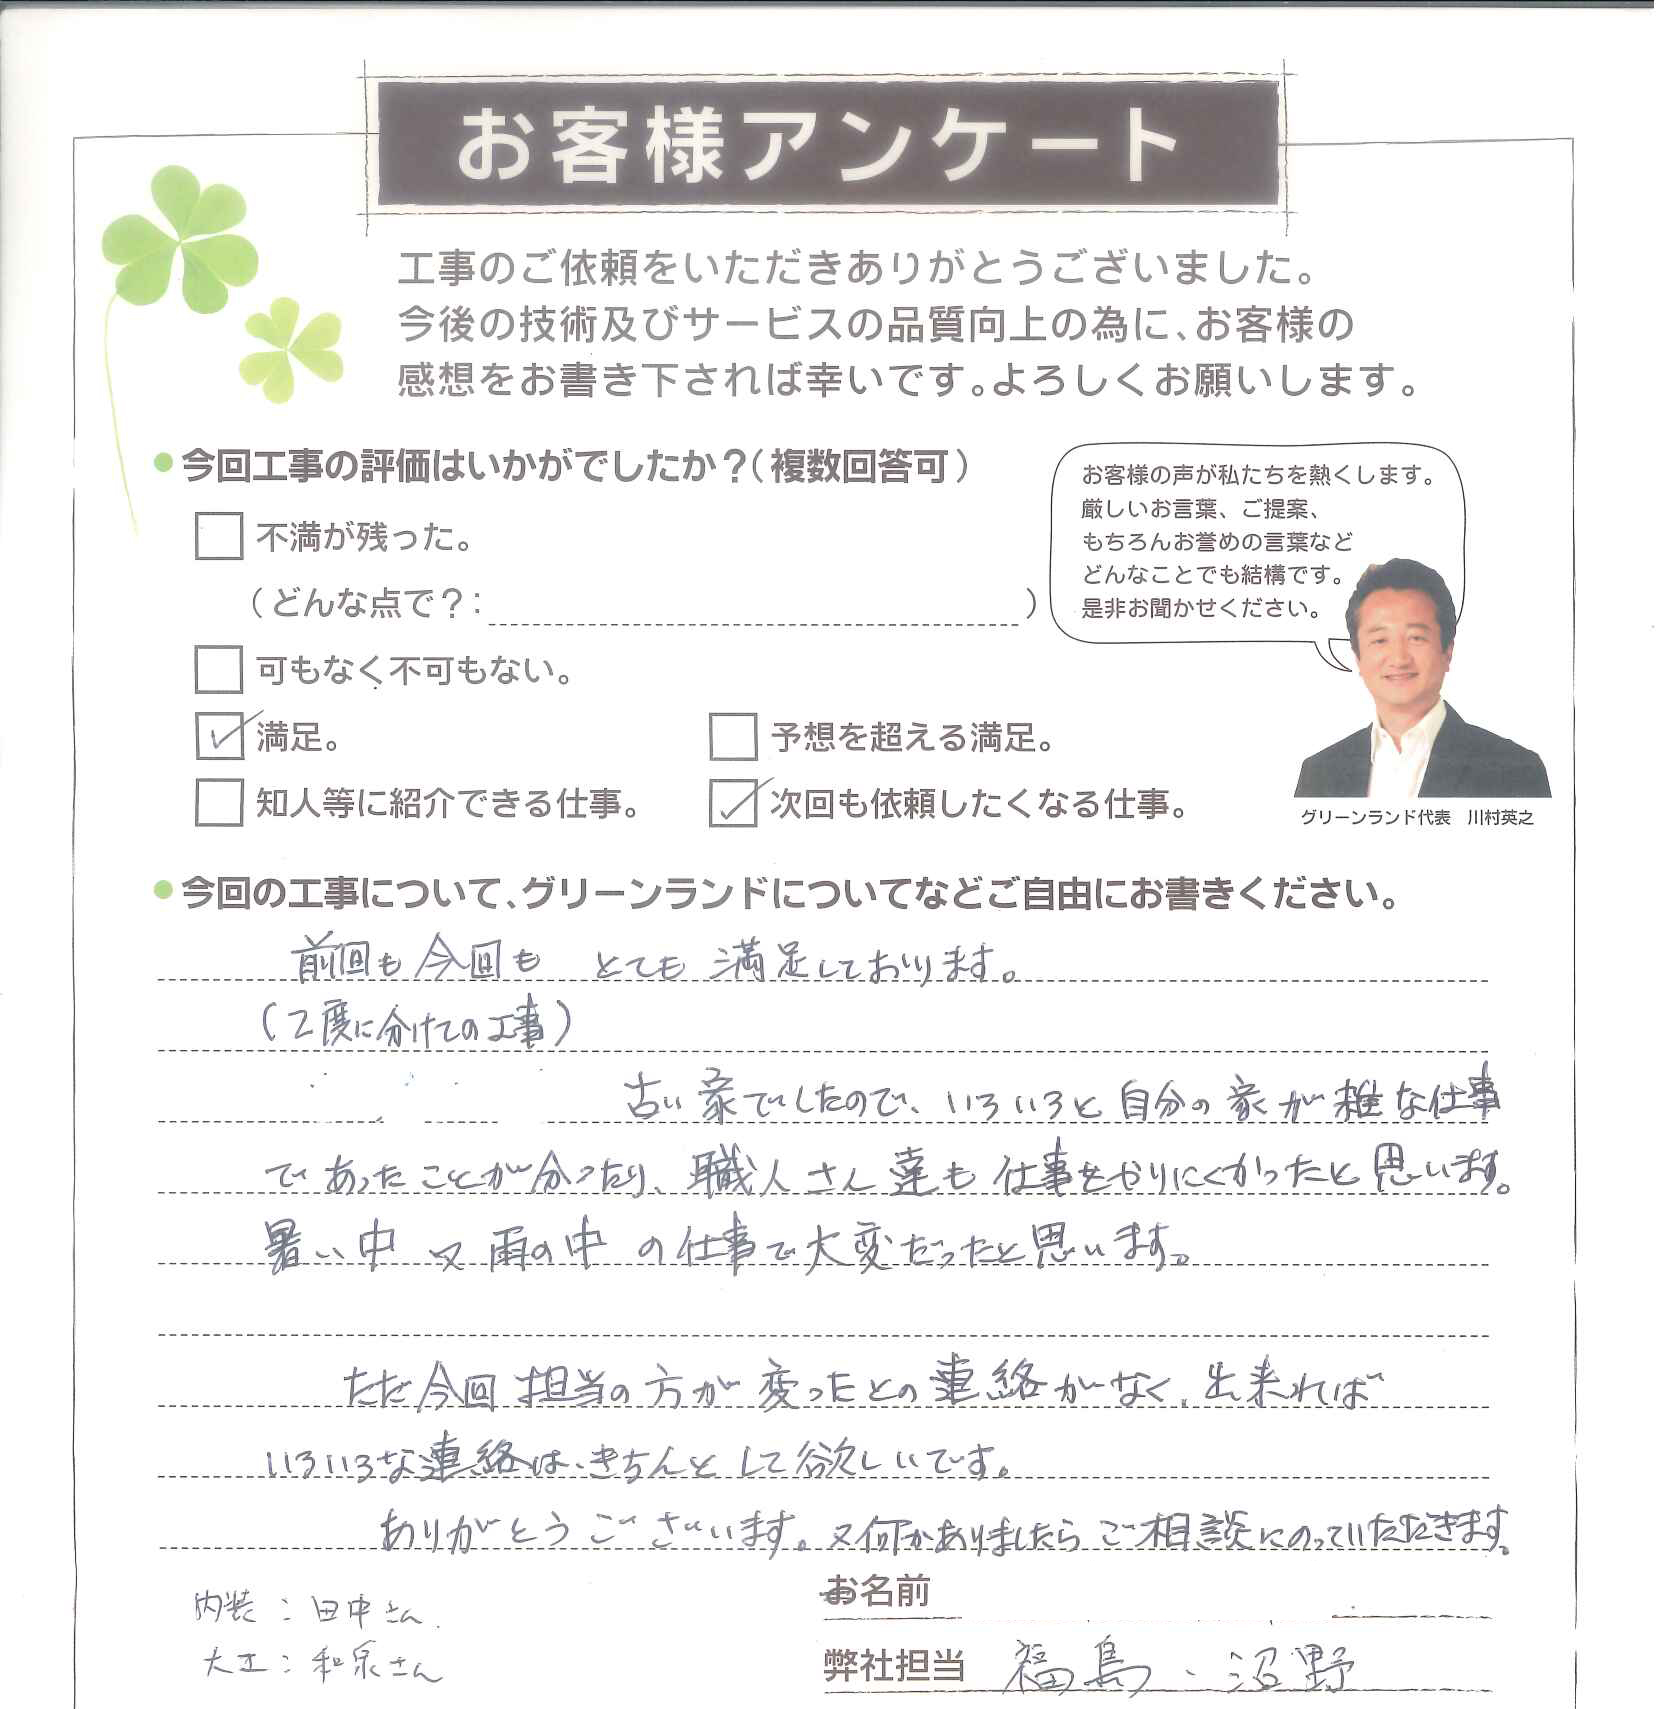 お客様アンケート
工事のご依頼をいただきありがとうございました。
今後の技術及びサービスの品質向上の為に、お客様の
感想をお書き下されば幸いです。よろしくお願いします。
今回工事の評価はいかがでしたか？（複数回答可）
不満が残った。
（どんな点で？： ）
可もなく不可もない。
満足。
予想を超える満足。
知人等に紹介できる仕事。
次回も依頼したくなる仕事。
お客様の声が私たちを熱くします。
厳しいお言葉、ご提案、
もちろんお誉めの言葉など
どんなことでも結構です。
是非お聞かせください。
グリーンランド代表　川村英之
今回の工事について、グリーンランドについてなどご自由にお書きください。
前回も今回も とても満足しております。
（２度に分けての工事）
古い家でしたので、いろいろと自分の家が雑な仕事
であったことが分ったり、職人さん達も仕事をやりにくかったと思います。
暑い中 又 雨の中 の仕事で大変だったと思います。
ただ今回担当の方が変ったとの連絡がなく、出来れば
いろいろな連絡は、きちんとして欲しいです。
ありがとうございます。又何かありましたらご相談にのっていただきます。
お名前
弊社担当 福島、沼野
内装：田中さん
大工：和泉さん